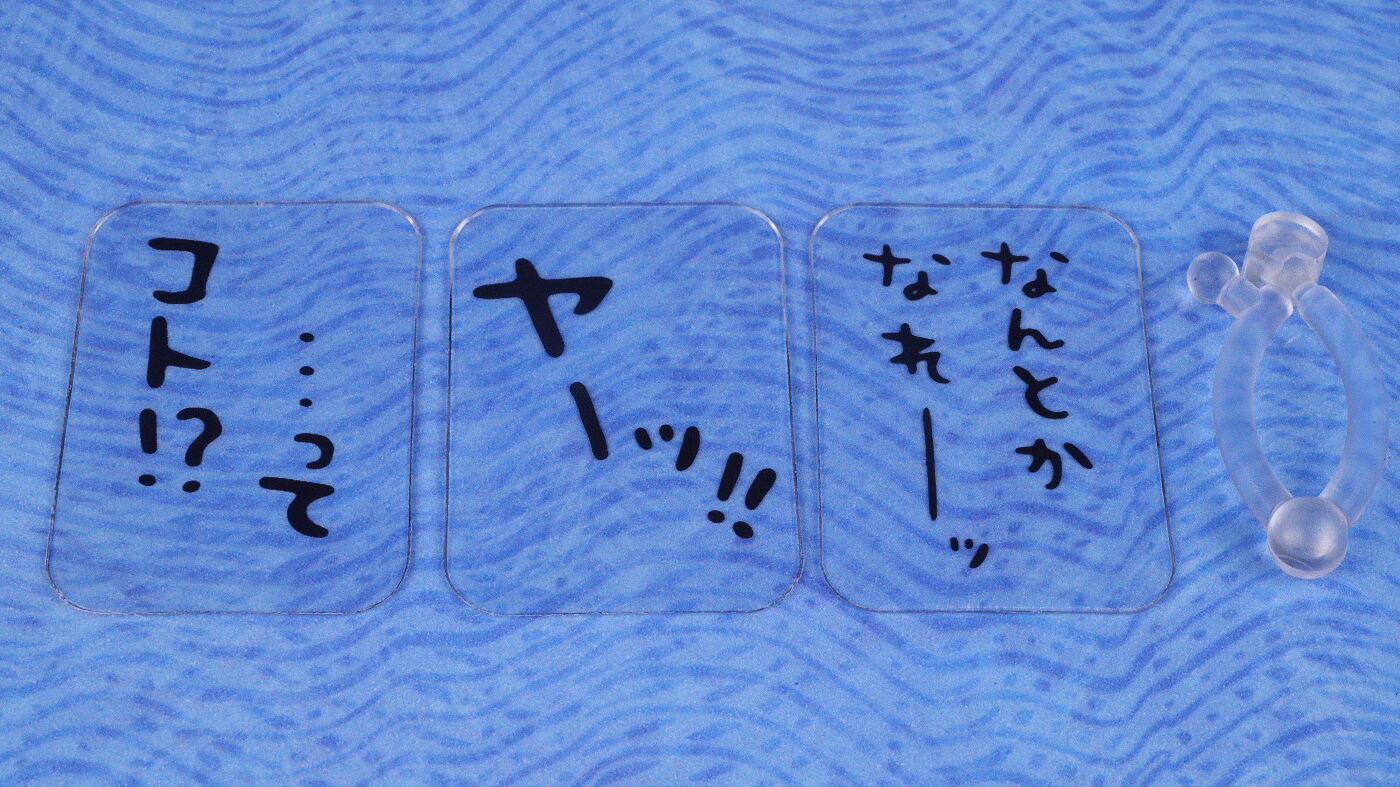 …って
コト!?
ヤーッ!!
なんとか
なれーッ